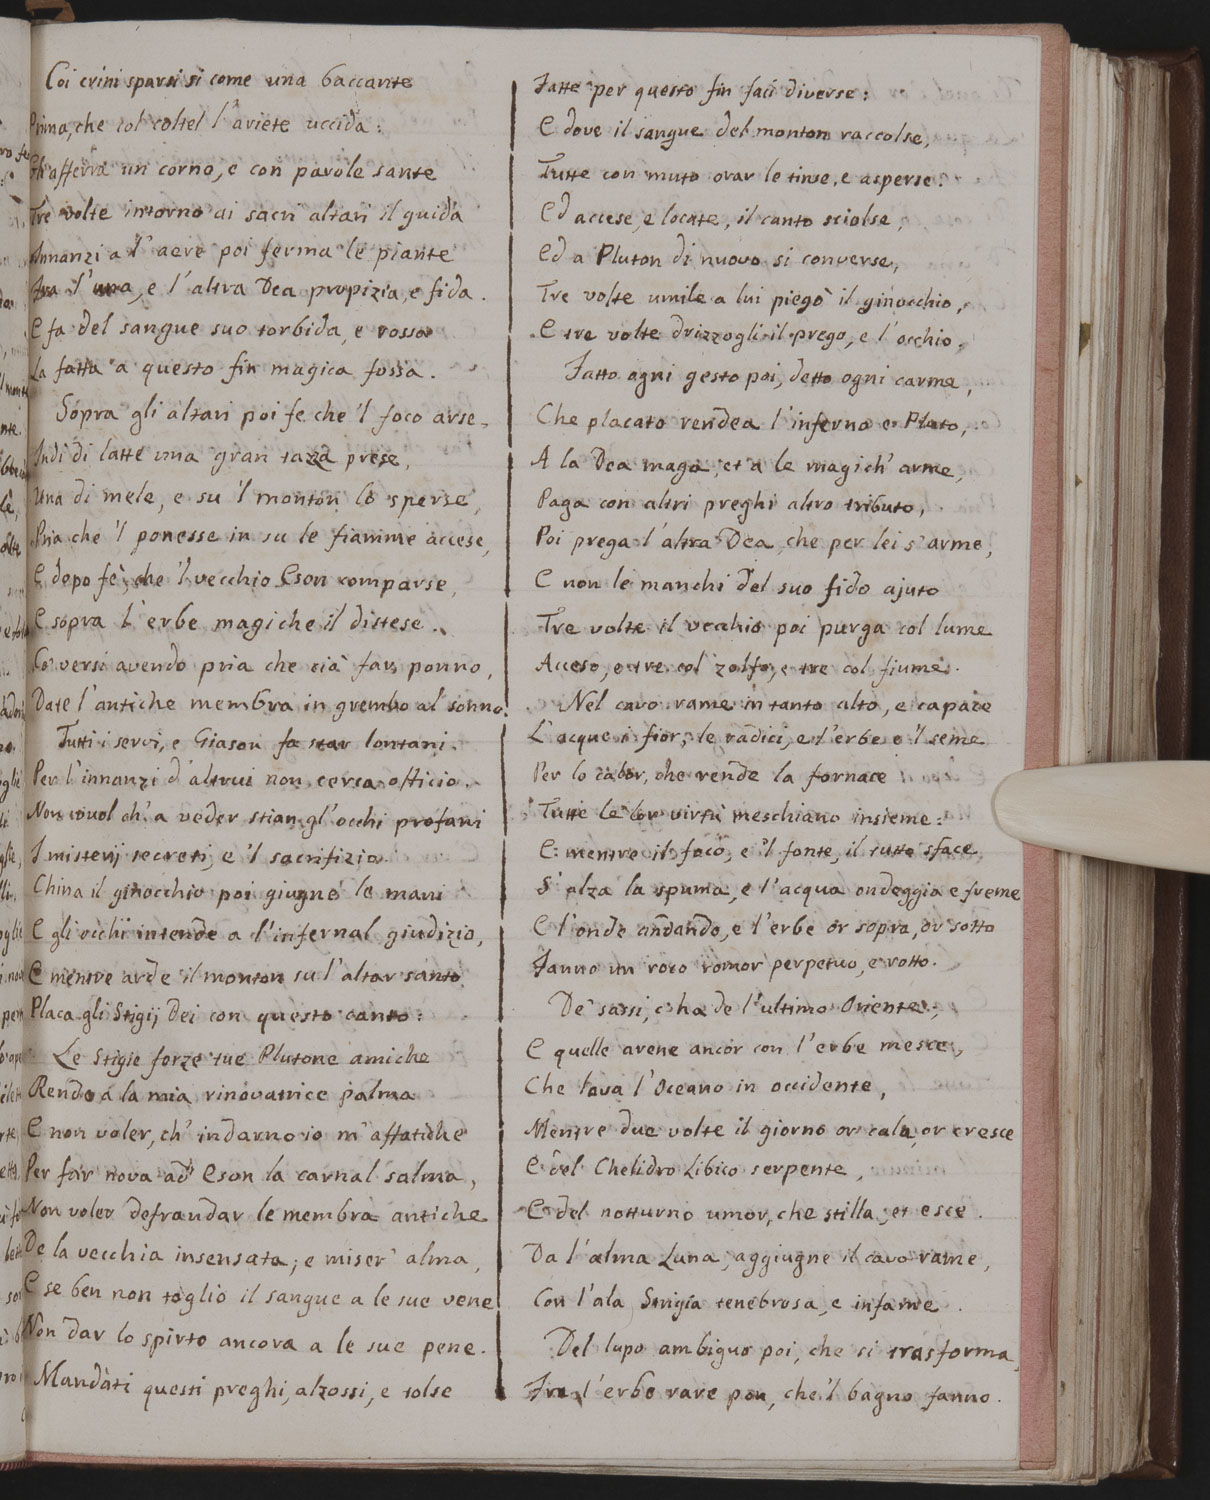 Coi crini sparsi si come una baccante
Prima, che col coltel l'ariete uccida:
Gli afferra un corno, e con parole sante
Tre volte intorno ai sacri altari il guida
Innanzi a l'aere poi ferma le piante
Fra l'una, e l'altra Dea propizia, e fida.
E fa del sangue suo torbida, e rossa
La fatta a questo fin magica fossa.
Sopra gli altari poi fe che 'l foco arse,
Indi di latte una gran tazza prese,
Una di mele, e su 'l monton lo sperse,
Pria che 'l ponesse in su le fiamme accese,
E dopo fè, che 'l vecchio Eson comparse,
E sopra l'erbe magiche il distese.
Co' versi avendo pria che ciò far ponno,
Date l'antiche membra in grembo al sonno.
Tutti i servi, e Giason fa star lontani.
Per l'innanzi d'altrui non cerca officio.
Non vuol ch' a veder stian gl' occhi profani
I misterij secreti, e 'l sacrifizio.
China il ginocchio poi giugne le mani
E gli occhi intende a l'infernal giudizio,
E mentre arde il monton su l'altar santo
Placa gli Stigij Dei con questo canto:
Le Stigie forze tue Plutone amiche
Rendo a la mia rinovatrice palma
E non voler, ch' indarno io m'affatiche
Per far nova ad Eson la carnal salma,
Non voler defraudar le membra antiche
De la vecchia insensata; e miser' alma,
E se ben non toglio il sangue a le sue vene
Non dar lo spirto ancora a le sue pene.
Mandati questi preghi, alzossi, e tolse
Fatte per questo fin faci diverse:
E dove il sangue del monton raccolse,
Tutte con muto orar le tinse, e asperse.
Ed accese, e locate, il canto sciolse,
Ed a Pluton di nuovo si converse,
Tre volte umile a lui piegò il ginocchio,
E tre volte drizzogli il prego, e l'occhio.
Fatto ogni gesto poi, detto ogni carme,
Che placato rendea l'inferno e Pluto,
A la Dea maga, et a le magich' arme,
Paga con altri preghi altro tributo,
Poi prega l'altra Dea, che per lei s'arme,
E non le manchi del suo fido ajuto
Tre volte il vecchio poi purga col lume
Acceso, e tre col zolfo, e tre col fiume.
Nel cavo rame in tanto alto, e capace
L'acque i fior, le radici, e l'erbe e 'l seme
Per lo calor, che rende la fornace
Tutte le lor virtù meschiano insieme:
E mentre il foco, e 'l fonte, il tutto sface
S'alza la spuma, e l'acqua ondeggia e freme
E l'onde andando, e l'erbe or sopra, or sotto
Fanno un roco romor perpetuo, e rotto.
De' sassi, c'ha de l'ultimo Oriente,
E quelle arene ancor con l'erbe mesce,
Che lava l'Oceano in occidente,
Mentre due volte il giorno or cala, or cresce
E del Chelidro Libico serpente,
E del notturno umor, che stilla, et esce.
Da l'alma Luna, aggiugne il cavo rame,
Con l'ala Strigia tenebrosa, e infame.
Del lupo ambiguo poi, che si trasforma,
Fra l'erbe rare pon, che 'l bagno fanno.